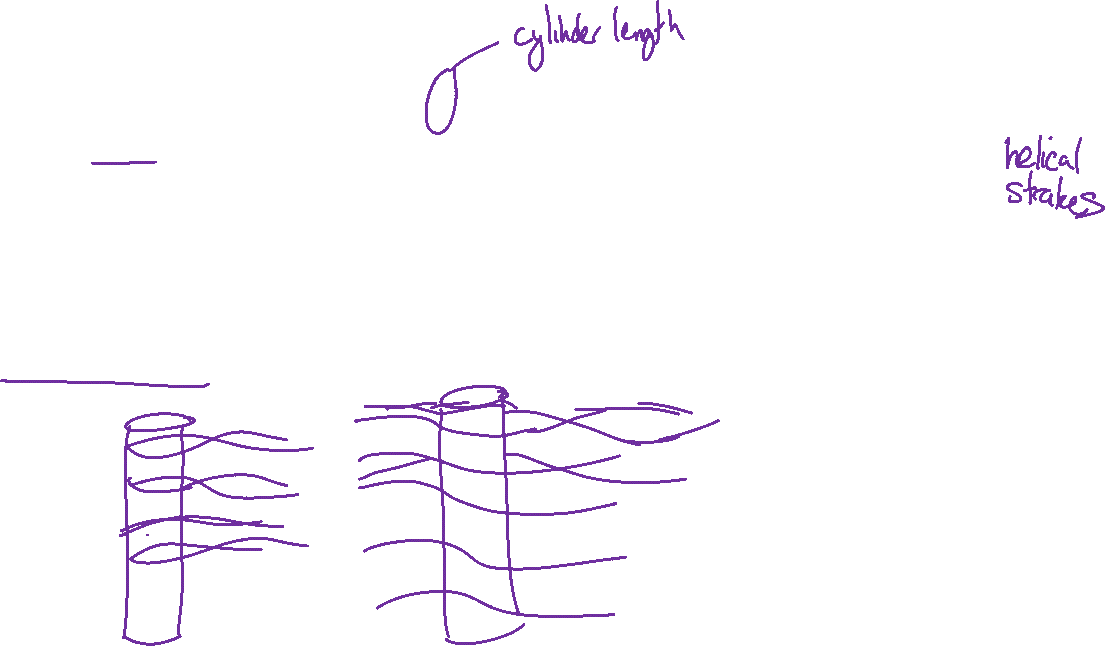 cylinder length
helical
strakes